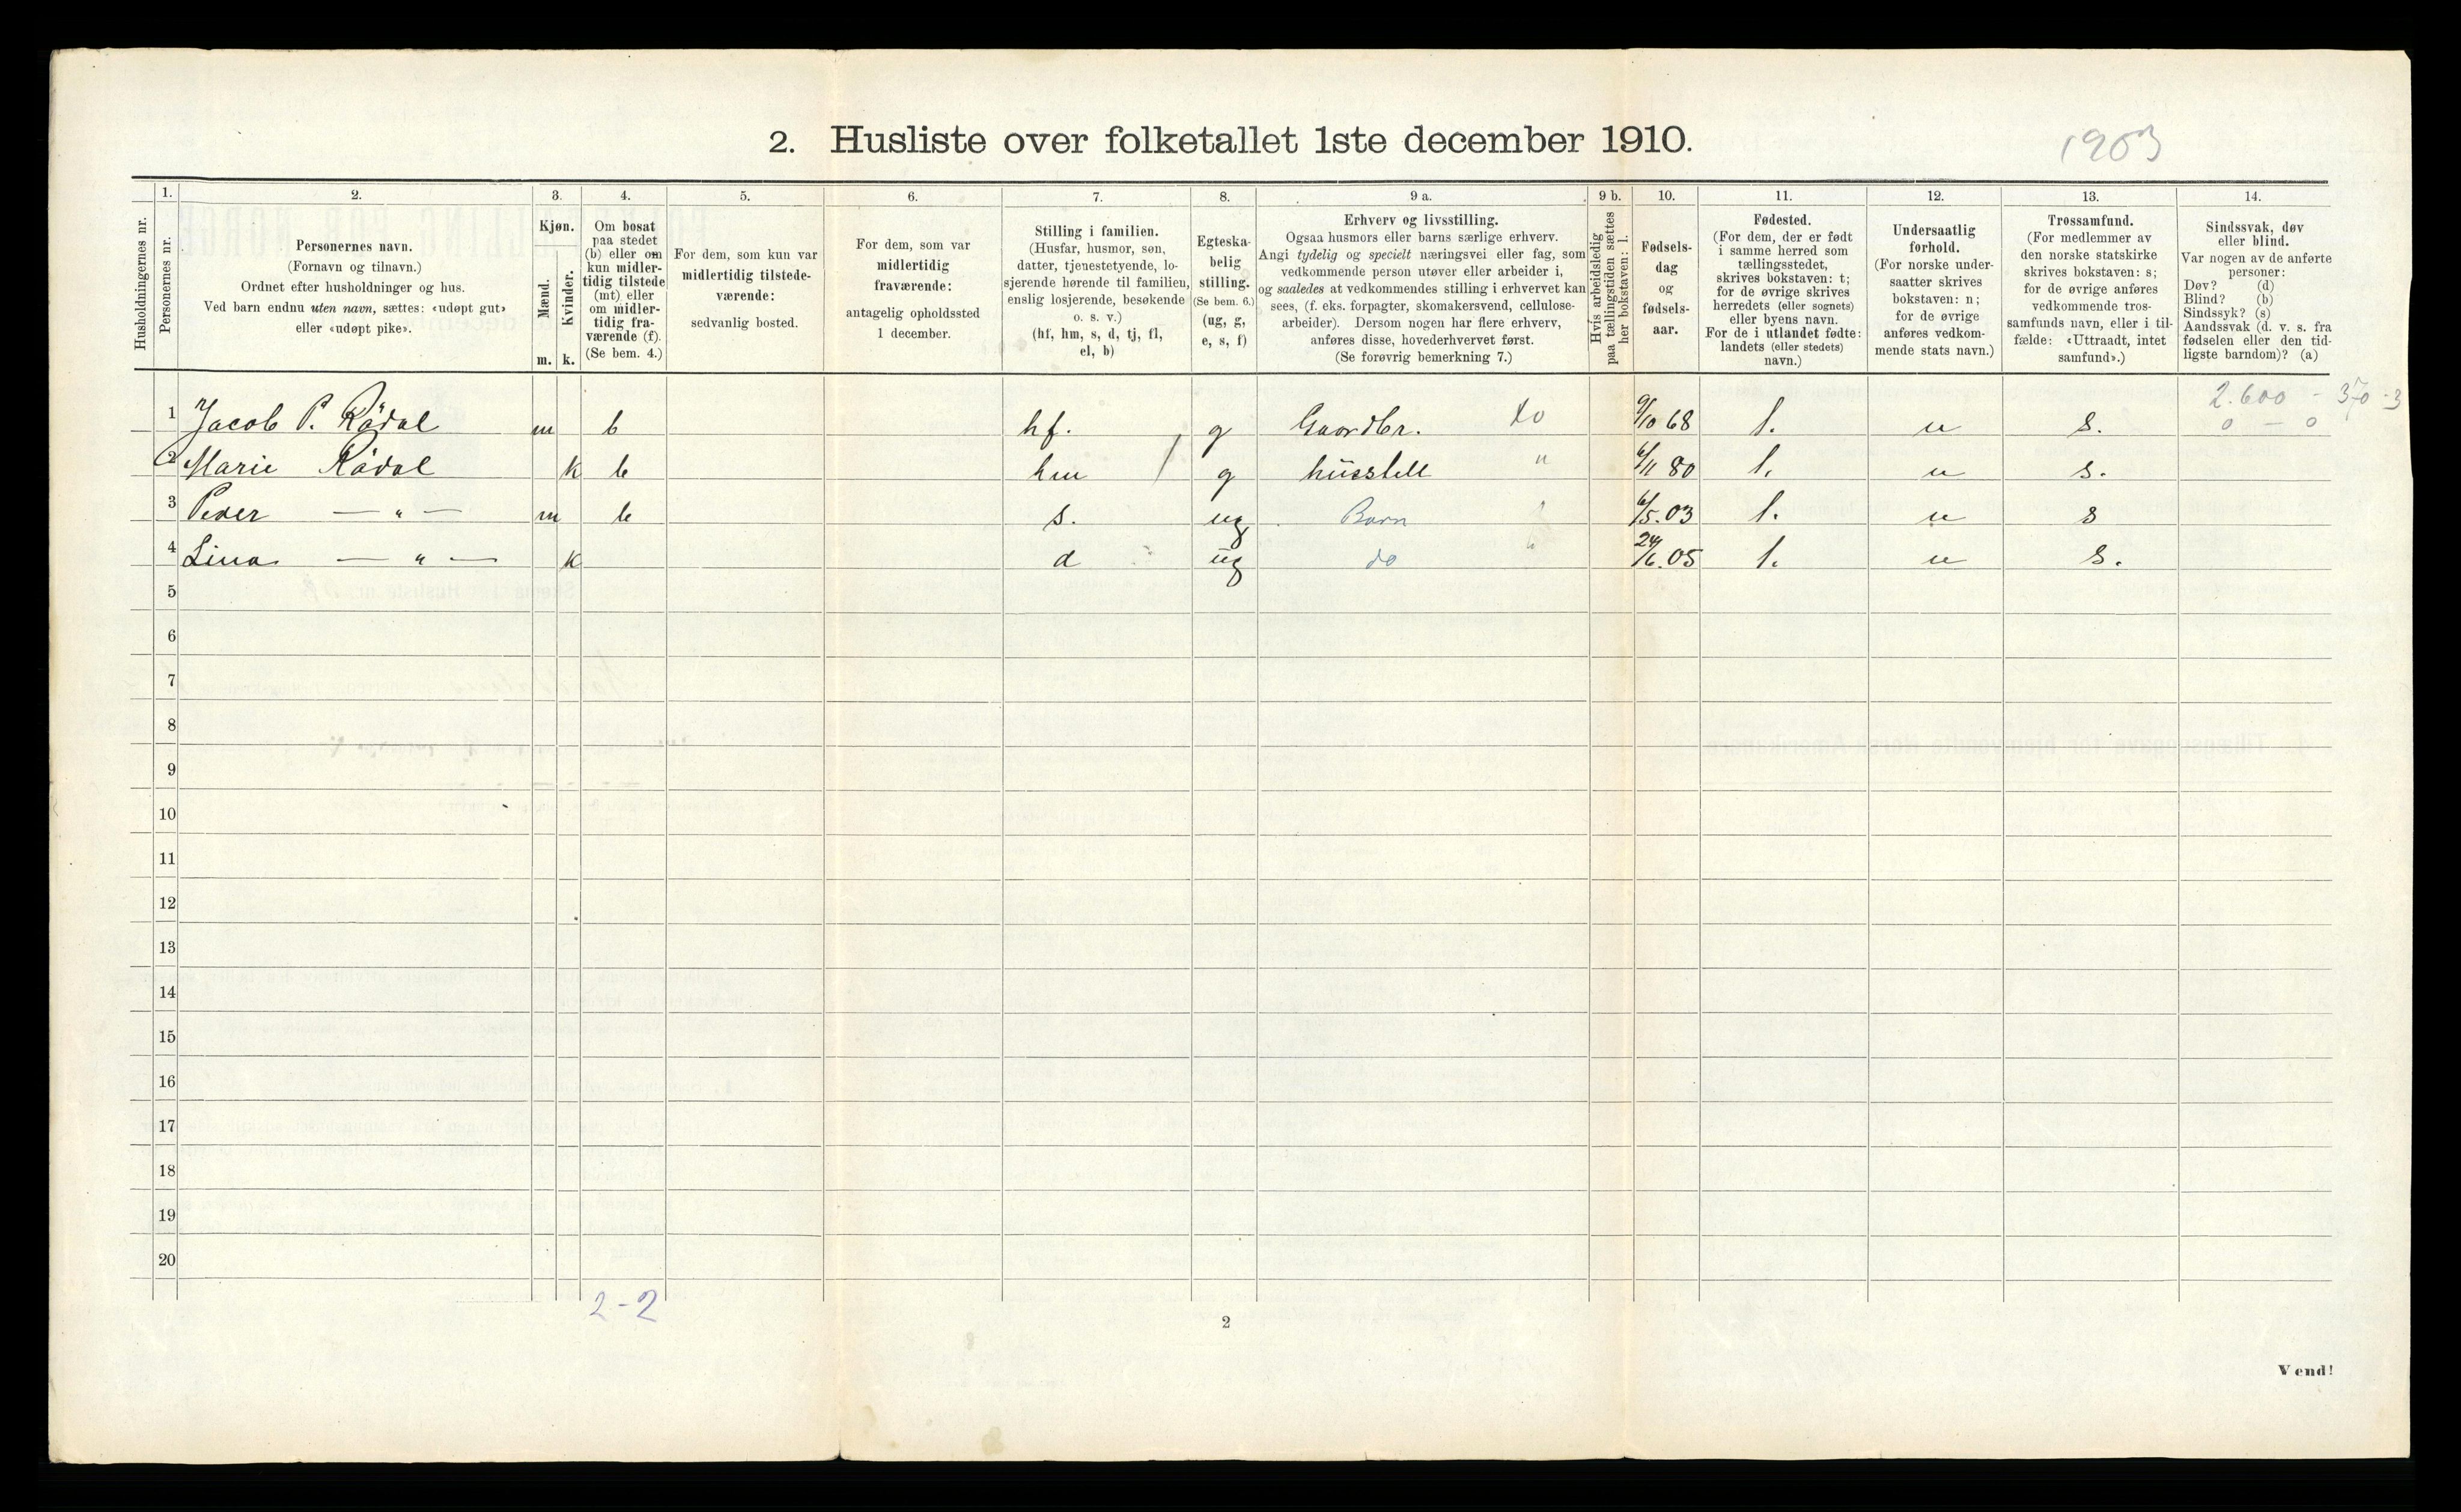 2. Husliste over folketallet 1ste december 1910.
1903
Husholdningernes nr.
1.
Personernes nr.
2.
Personernes navn.
(Fornavn og tilnavn.)
Ordnet efter husholdninger og hus.
Ved barn endnu uten navn, sættes: «udøpt gut»
eller «udøpt pike».
3.
Kjøn.
Mænd.
Kvinder.
m. k.
4.
Om bosat
paa stedet
(b) eller om
kun midler-
tidig tilstede
(mt) eller
om midler-
tidig fra-
værende (f).
(Se bem. 4.)
5.
For dem, som kun var
midlertidig tilstede-
værende:
sedvanlig bosted.
6.
For dem, som var
midlertidig
fraværende:
antagelig opholdssted
1 december.
7.
Stilling i familien.
(Husfar, husmor, søn,
datter, tjenestetyende, lo-
sjerende hørende til familien,
enslig losjerende, besøkende
o. s. v.)
(hf, hm, s, d, tj, fl,
el, b)
8.
Egteska-
belig
stilling.
(Se bem. 6.)
(ug, g,
e, s, f)
9 a.
Erhverv og livsstilling.
Ogsaa husmors eller barns særlige erhverv.
Angi tydelig og specielt næringsvei eller fag, som
vedkommende person utøver eller arbeider i,
og saaledes at vedkommendes stilling i erhvervet kan
sees, (f. eks. forpagter, skomakersvend, cellulose-
arbeider). Dersom nogen har flere erhverv,
anføres disse, hovederhvervet først.
(Se forøvrig bemerkning 7.)
9 b.
Hvis arbeidsledig
paa tællingstiden sættes
her bokstaven: l.
10.
Fødsels-
dag
og
fødsels-
aar.
11.
Fødested.
(For dem, der er født
i samme herred som
tællingsstedet,
skrives bokstaven: t;
for de øvrige skrives
herredets (eller sognets)
eller byens navn.
For de i utlandet fødte:
landets (eller stedets)
navn.)
12.
Undersaatlig
forhold.
(For norske under-
saatter skrives
bokstaven: n;
for de øvrige
anføres vedkom-
mende stats navn.)
13.
Trossamfund.
(For medlemmer av
den norske statskirke
skrives bokstaven: s;
for de øvrige anføres
vedkommende tros-
samfunds navn, eller i til-
fælde: «Uttraadt, intet
samfund».)
14.
Sindssvak, døv
eller blind.
Var nogen av de anførte
personer:
Døv? (d)
Blind? (b)
Sindssyk? (s)
Aandssvak (d. v. s. fra
fødselen eller den tid-
ligste barndom)? (a)
2.600 - 370-3
0 — 0
1 Jacob P. Rödal m b hf. g Gaardbr. 9/10 68 t. n s.
2 Marie Rödal k b hm g husstell " 6/11 80 t. n s.
3 Peder — " — m b s. ug Barn 6/5.03 t. n s
4 Lina — " — k d ug do 24/6.05 t. n s.
5
6
7
8
9
10
11
12
13
14
15
16
17
18
19
20
2-2
2
Vend!